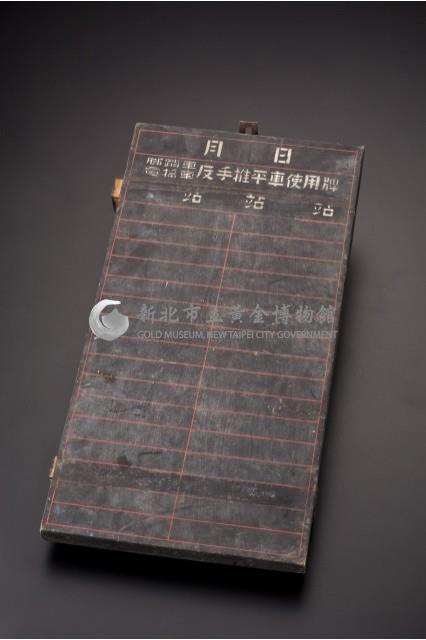 月 日
腳踏車
電搖車 反手推平車使用牌
站 站 站
新北市立黃金博物館
GOLD MUSEUM, NEW TAIPEI CITY GOVERNMENT